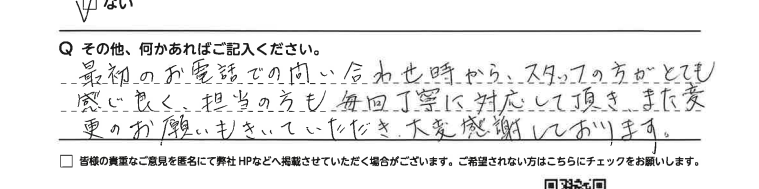 ない
Q その他、何かあればご記入ください。
最初のお電話での問い合わせ時から、スタッフの方がとても
感じ良く、担当の方も毎回丁寧に対応して頂き、また変
更のお願いもきいていただき、大変感謝しております。
□ 皆様の貴重なご意見を匿名にて弊社HPなどへ掲載させていただく場合がございます。ご希望されない方はこちらにチェックをお願いします。